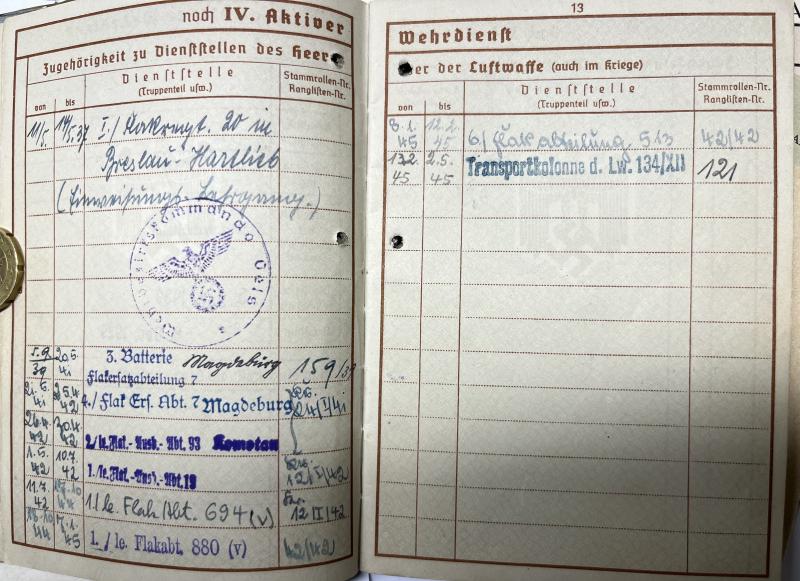 noch IV. Aktiver
Zugehörigkeit zu Dienststellen des Heer
Dienststelle
(Truppenteil usw.)
Stammrollen-Nr.
Ranglisten-Nr.
von bis
11/5. 14/5.37 I./ Flakregt. 20 in
Breslau-Hartlieb
(Einweisungs-Lehrgang.)
Wehrbezirkskommando Oels
5.9. 39 20.5. 41 3. Batterie Magdeburg 159/39
Flakersatzabteilung 7
21.5. 41 25.4. 42 4./ Flak Ers. Abt. 7 Magdeburg 24/I/41
26.4. 42 30.4. 42 2./le.Flak.-Ausb.-Abt. 93 Komotau
1.5. 42 10.7. 42 1./le.Flak.-Ausb.-Abt. 19 12/I/42
11.7. 42 1./le. Flak/Abt. 694 (v) 12 II/42
44 7.1. 45 1./ le. Flakabt. 880 (v) 42/42
13
Wehrdienst
er der Luftwaffe (auch im Kriege)
Dienststelle
(Truppenteil usw.)
Stammrollen-Nr.
Ranglisten-Nr.
von bis
8.1. 45 12.2. 45 6/ Flakabteilung 513 42/42
13.2. 45 2.5. 45 Transportkolonne d. Lw. 134/XII 121